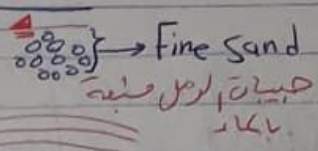 Fine Sand
حبيبات الرمل مشبعة
بالماء